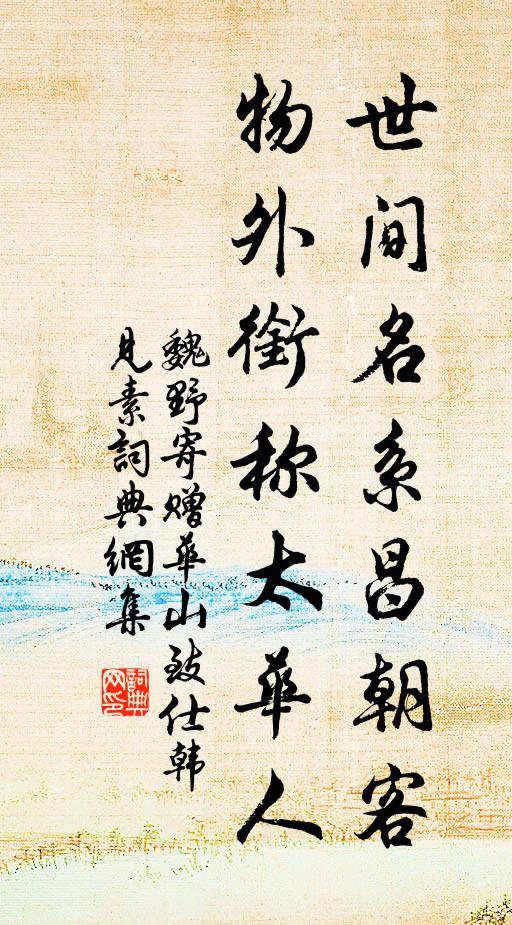 世间名系昌朝客
物外衔称太华人
魏野寄赠华山致仕韩
见素词典网集
词典网印